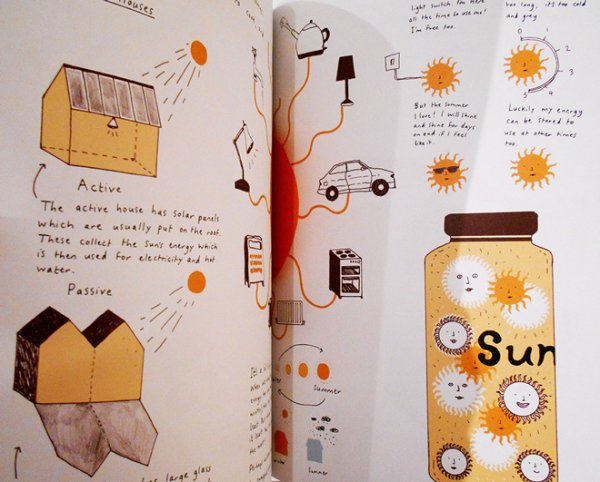 Houses
Active
The active house has solar panels
which are usually put on the roof.
These collect the sun's energy which
is then used for electricity and hot
water.
Passive
large glass
Summer
Summer
light switch. I'm here
all the time so use me!
I'm free too.
But the summer
I love! I will shine
and shine for days
on end if I feel
like it.
too long, it's too cold
and grey.
0
1
2
3
4
5
Luckily my energy
can be stored to
use at other times
too.
Sun